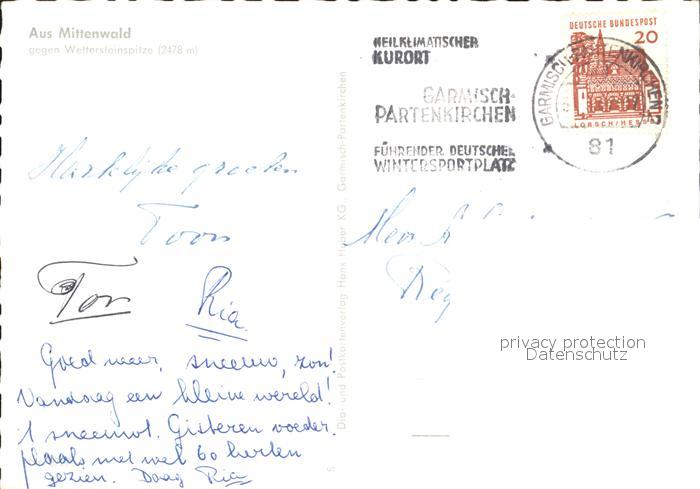 Aus Mittenwald
gegen Wettersteinspitze (2478 m)
HEILKLIMATISCHER
KURORT
GARMISCH-
PARTENKIRCHEN
FÜHRENDER DEUTSCHER
WINTERSPORTPLATZ
DEUTSCHE BUNDESPOST
20
LORSCH/HESSEN
GARMISCH-PARTENKIRCHEN 2
81
Hartelijke groeten
Toon
Ton Ria
Goed weer, sneeuw, zon!
Vandaag een kleine wereld!
't sneeuwt. Gisteren voeder-
plaats met wel 60 herten
gezien. Daag Ria
Dia- und Postkartenverlag Hans Huber KG., Garmisch-Partenkirchen
privacy protection
Datenschutz